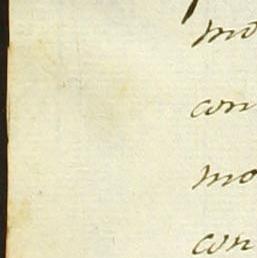 mo
con
mo
con